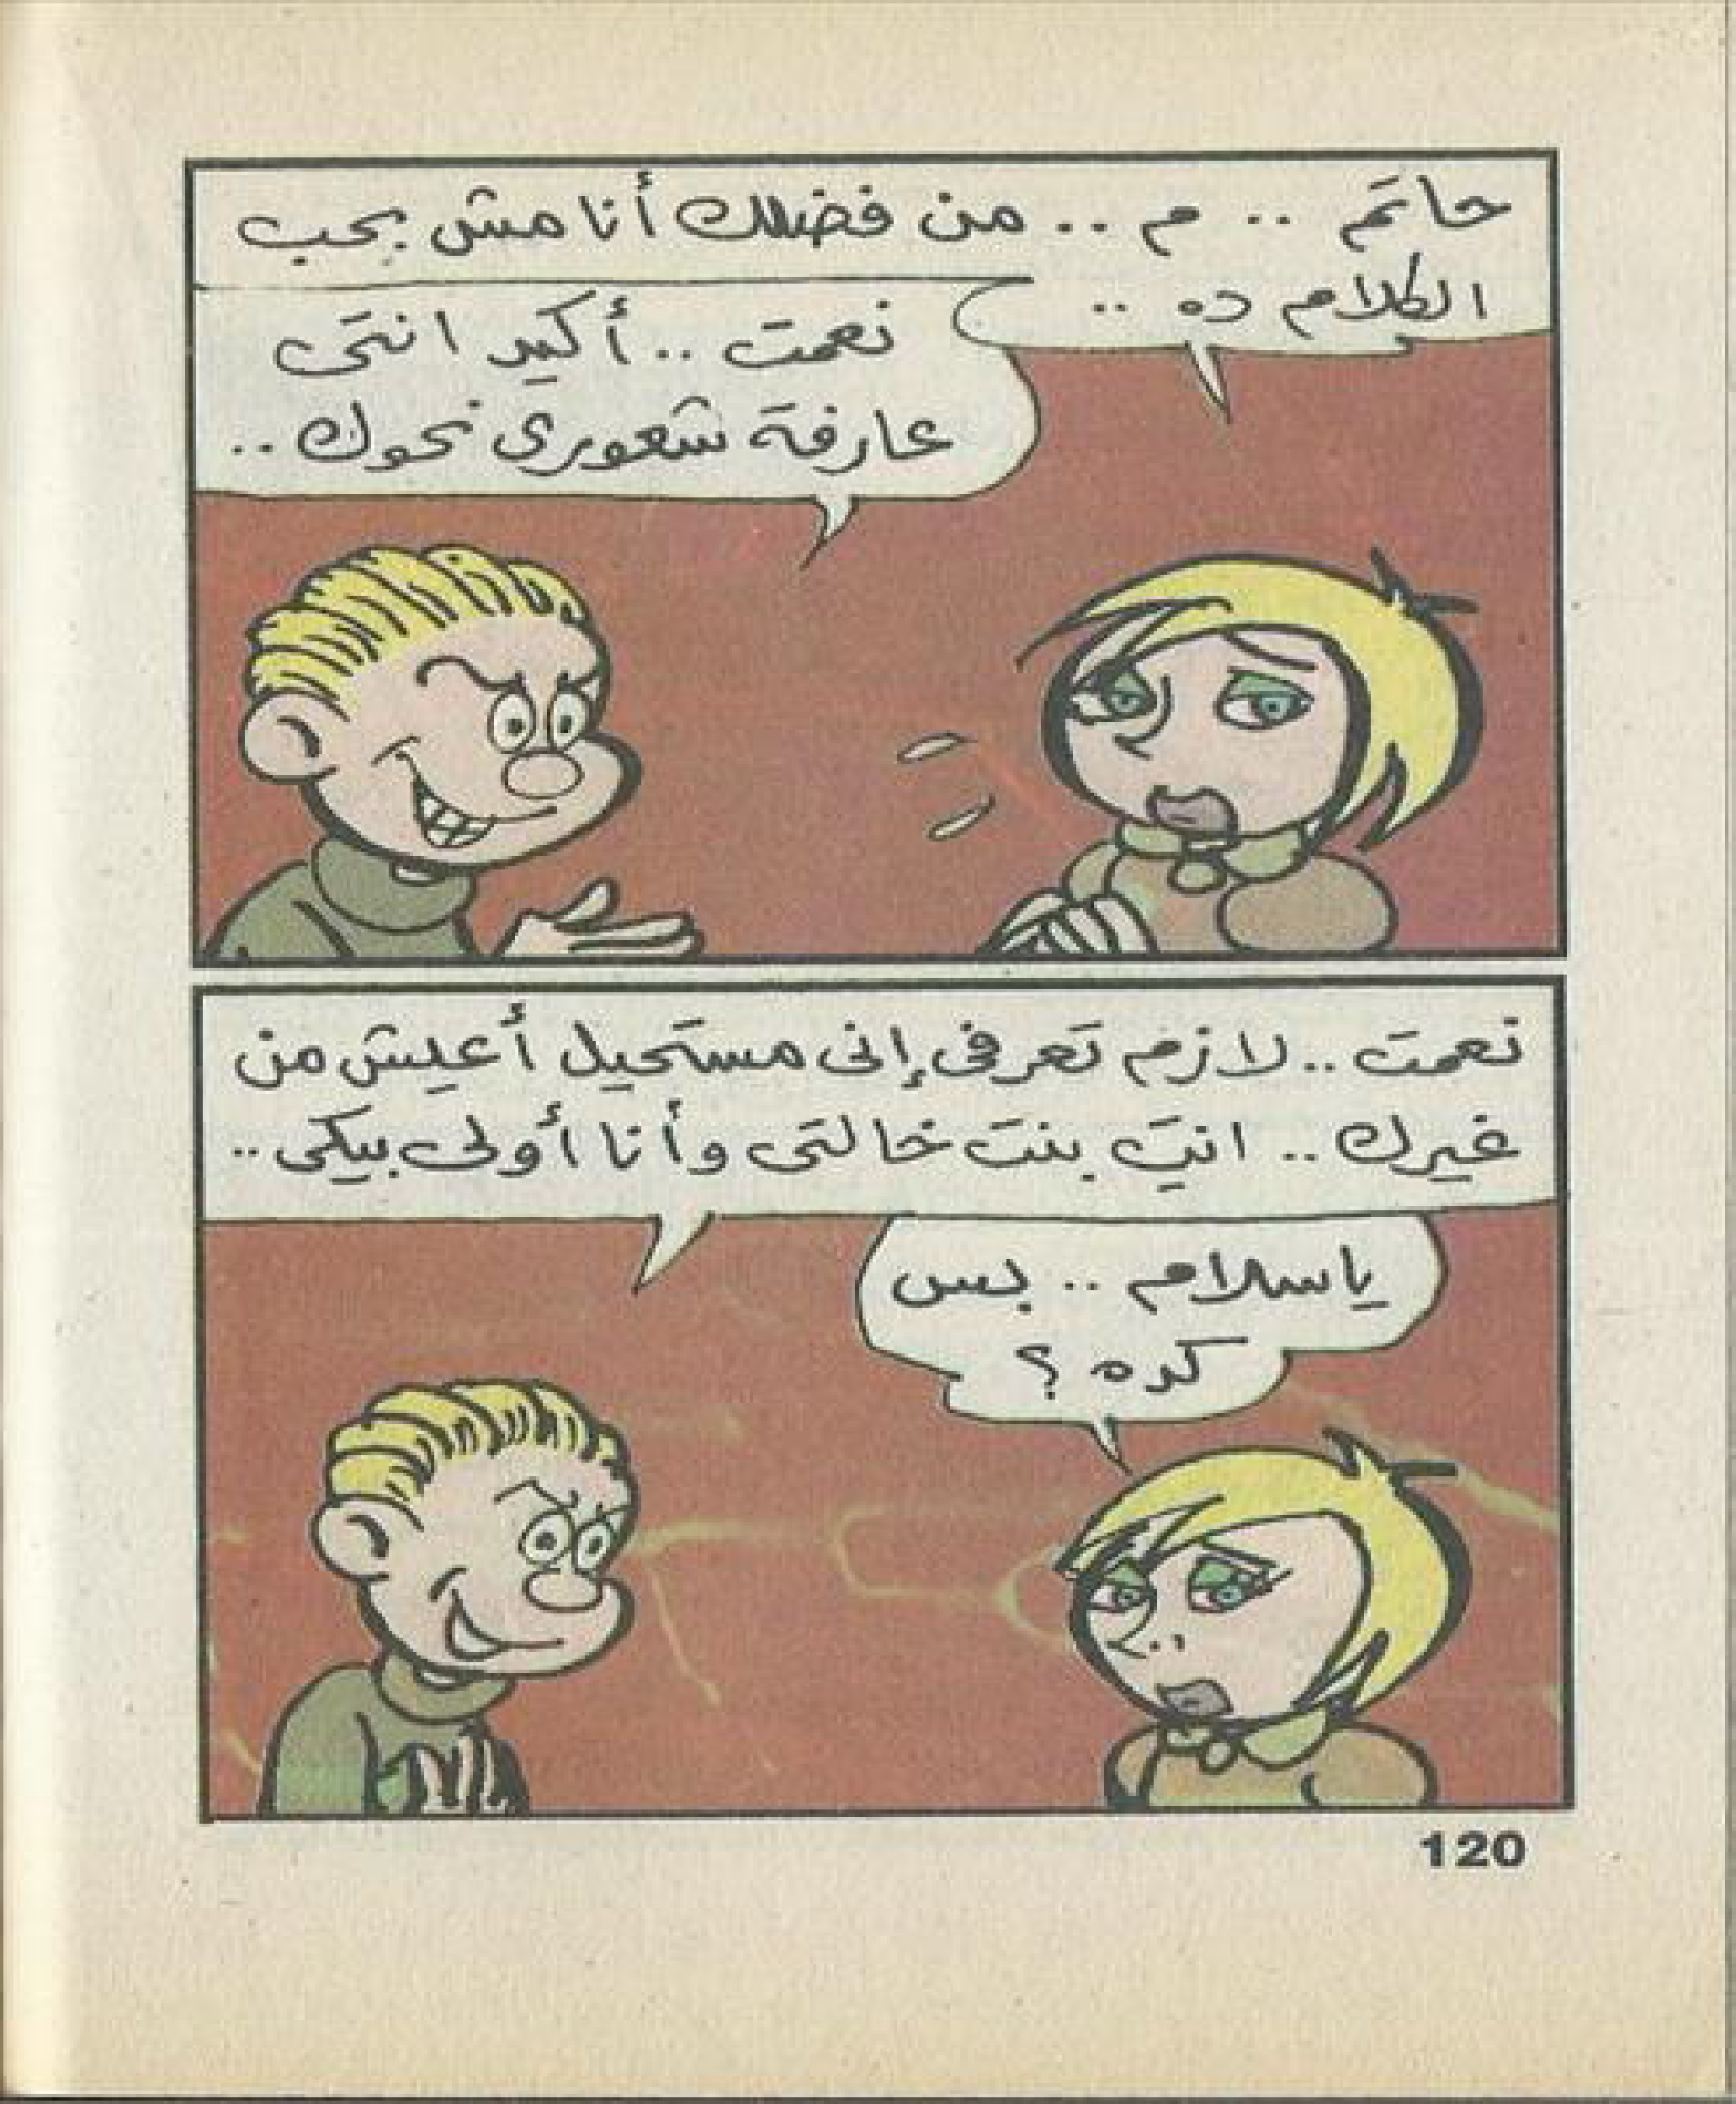 حاتم .. م .. من فضلك أنا مش بحب
الكلام ده ..
نعمت .. أكيد انتى
عارفة شعورى نحوك ..
نعمت .. لازم تعرفى إنى مستحيل أعيش من
غيرك .. انتِ بنت خالتى وأنا أولى بيكى ..
ياسلام .. بس
كده ؟
120